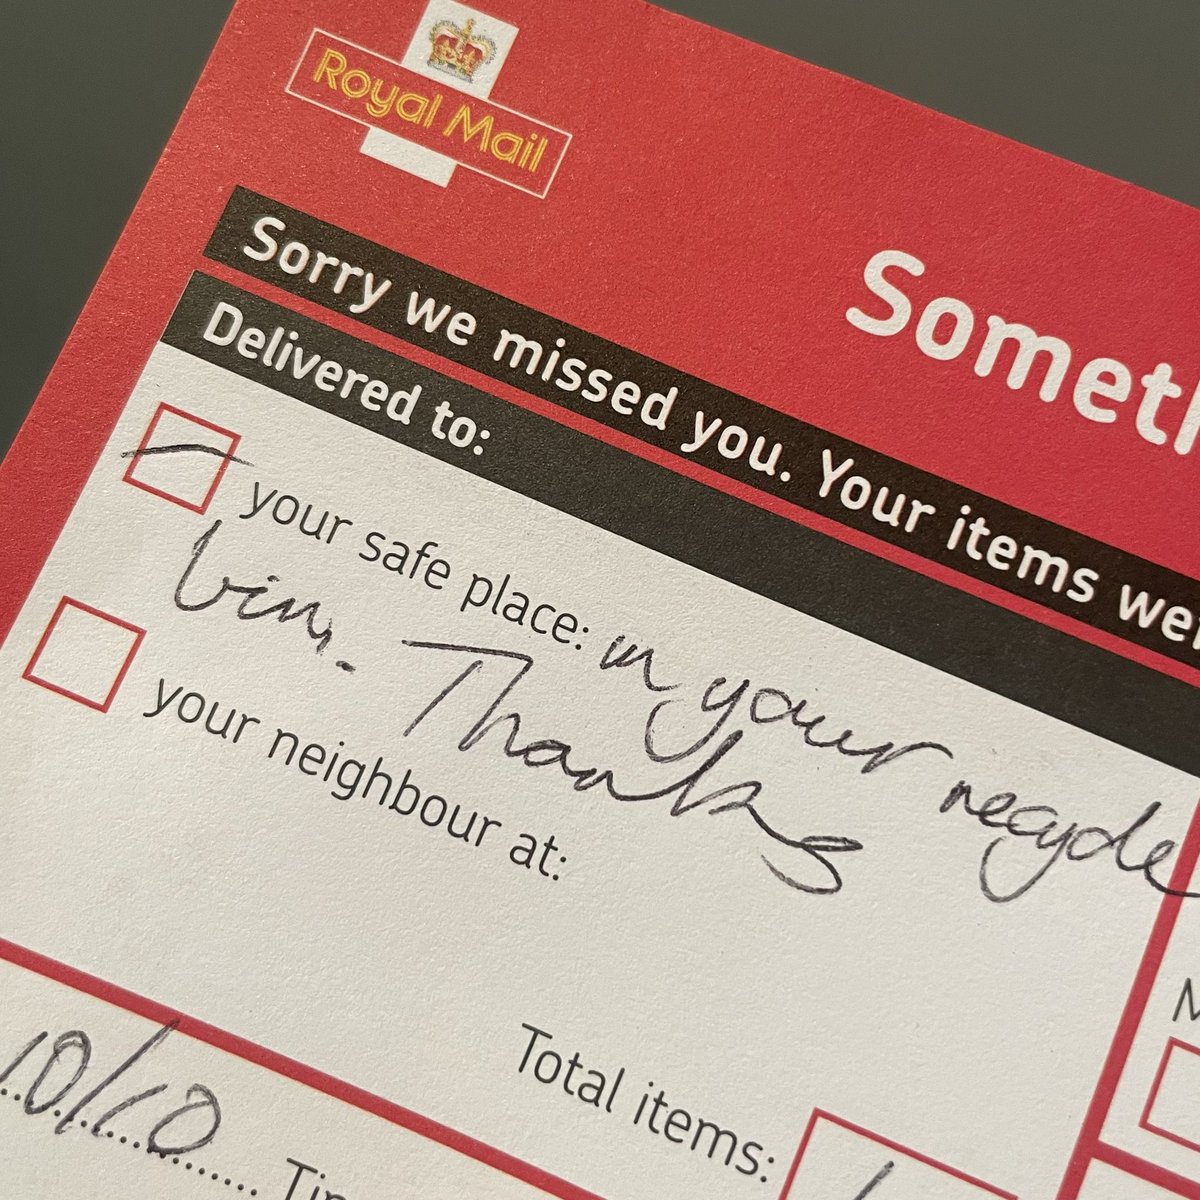 Royal Mail
Someth
Sorry we missed you. Your items wer
Delivered to:
your safe place: in your recycle
bin. Thanks
your neighbour at:
Total items: 1
M
10/10 Tim